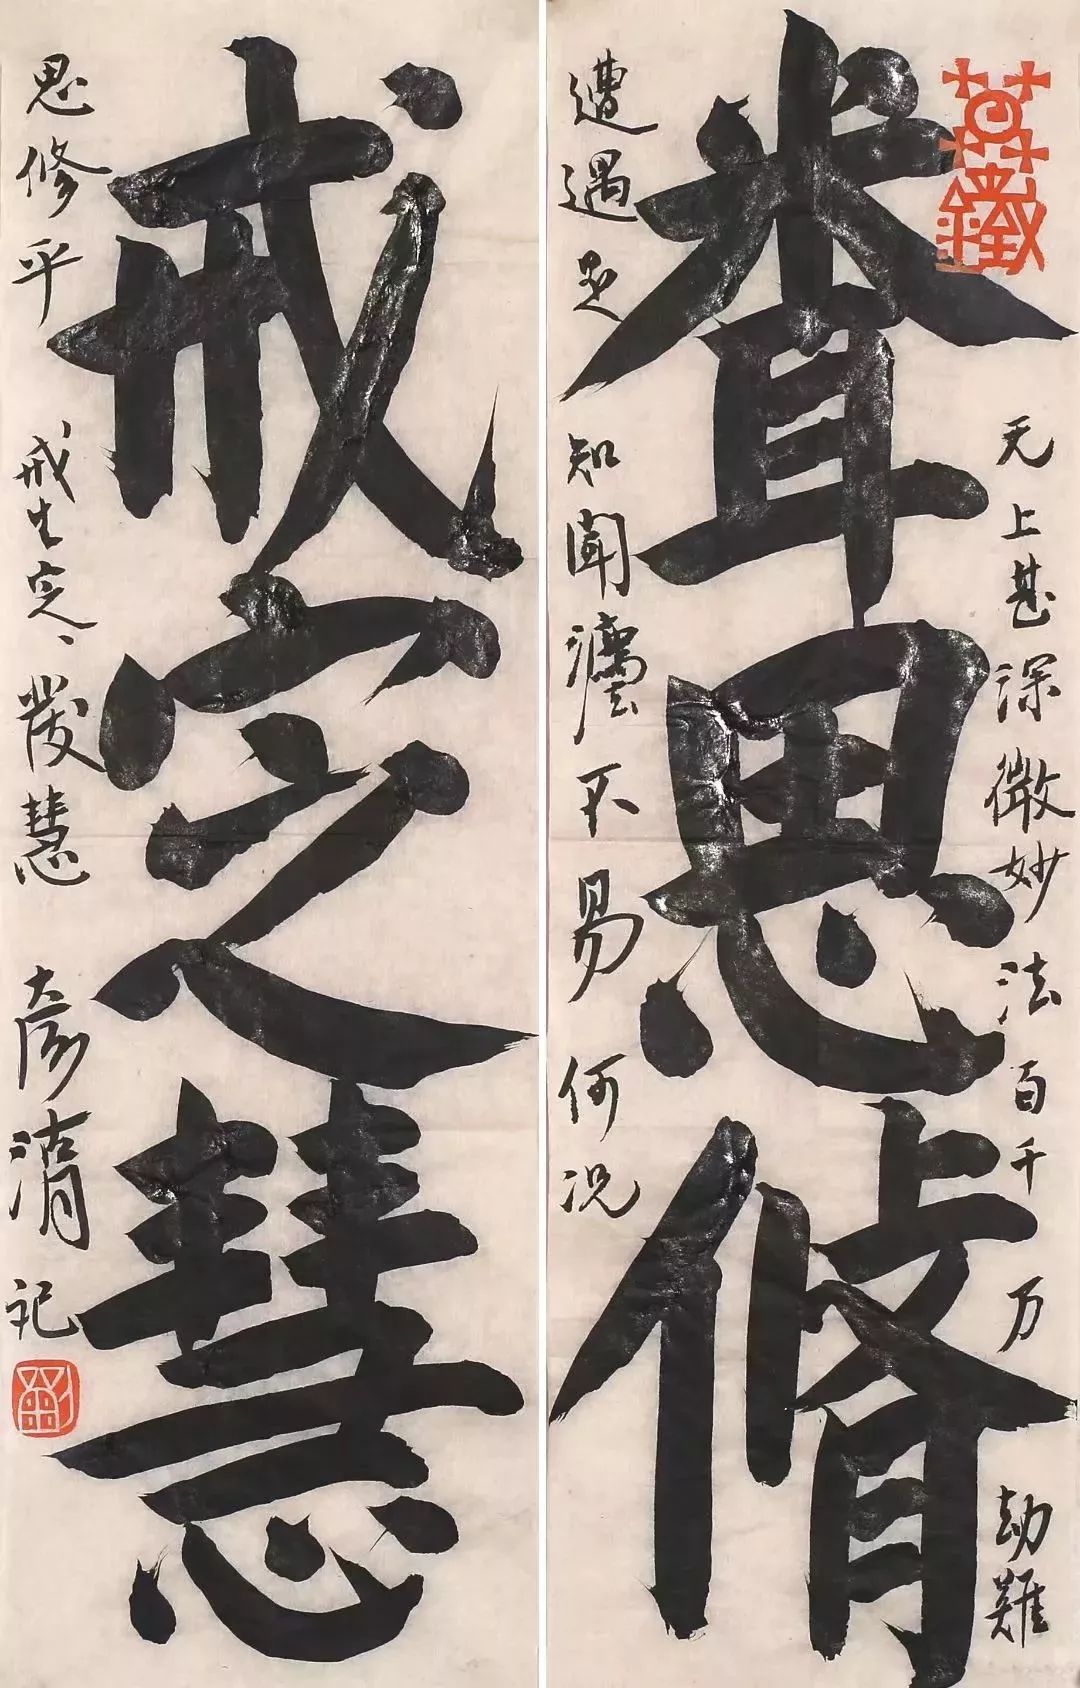 思脩
无上甚深微妙法百千万劫難
遭遇是知聞灋不易何況
戒定慧
思修乎
戒生定、發慧
記